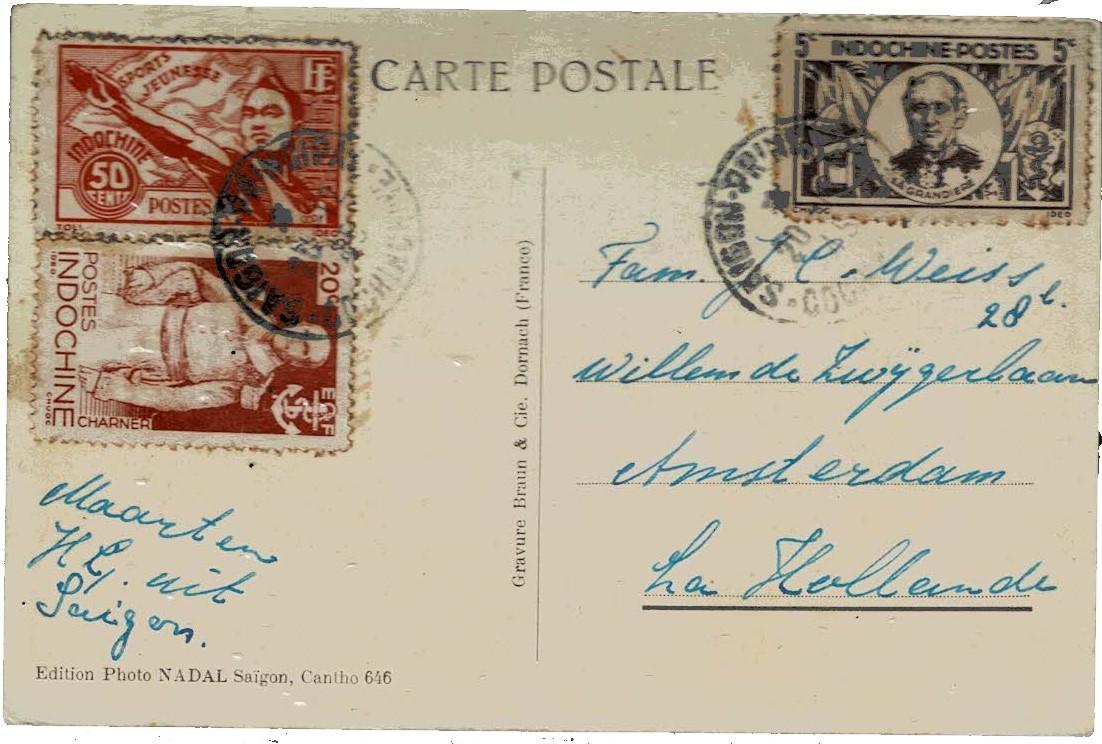 CARTE POSTALE
SPORTS
JEUNESSE
INDOCHINE
50
CENTS
POSTES
EF
20c
POSTES
INDOCHINE
CHARNER
EF
IDEO
CHUOC
5c INDOCHINE-POSTES 5c
LA GRANDIERE
CHUOC IDEO
SAIGON-PRINCIPAL
SAIGON-PRIN
Fam. J.C. Weiss
28 l.
Willem de Zwÿgerlaan
Amsterdam
La Hollande
Maarten
uit
Saigon.
Gravure Braun & Cie. Dornach (France)
Edition Photo NADAL Saïgon, Cantho 646